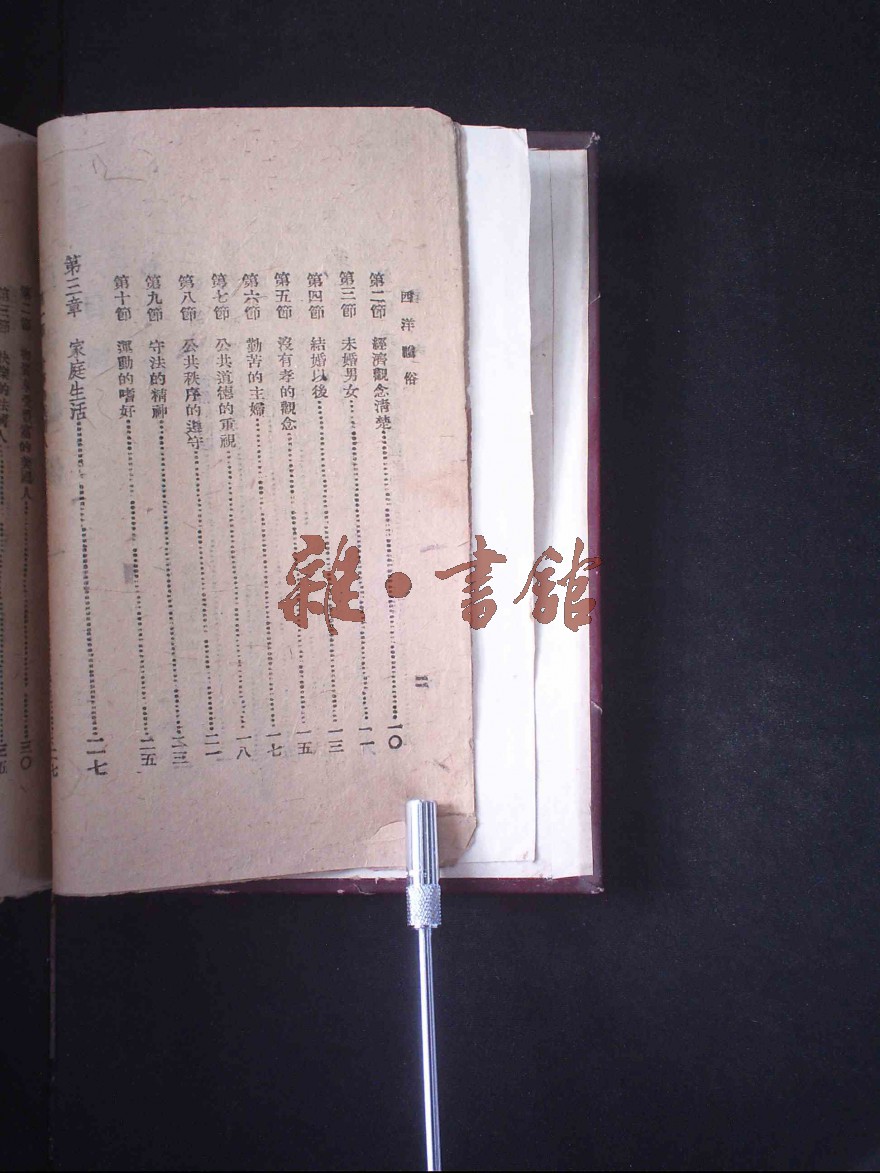 西洋禮俗
二
第二節 經濟觀念清楚…………一〇
第三節 未婚男女…………一一
第四節 結婚以後…………一三
第五節 沒有孝的觀念…………一五
第六節 勤苦的主婦…………一七
第七節 公共道德的重視…………一八
第八節 公共秩序的遵守…………二一
第九節 守法的精神…………二三
第十節 運動的嗜好…………二五
第三章 家庭生活…………二七
二七
第二節 的美國人…………三〇
第三節 快樂的法國人…………三五
雜·書館